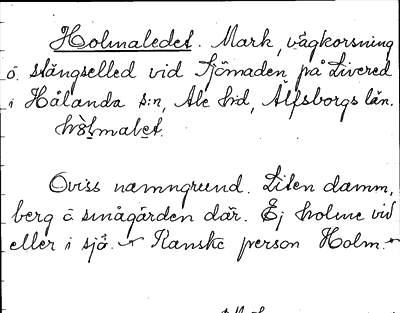 Holmaledet. Mark, vägkorsning
o. stängselled vid Sjömaden på Livered
i Hålanda s:n, Ale hd, Älfsborgs län.
hòlmalet.
Oviss namngrund. Liten damm,
berg o smågärden där. Ej holme vid
eller i sjö. Kanske person Holm.